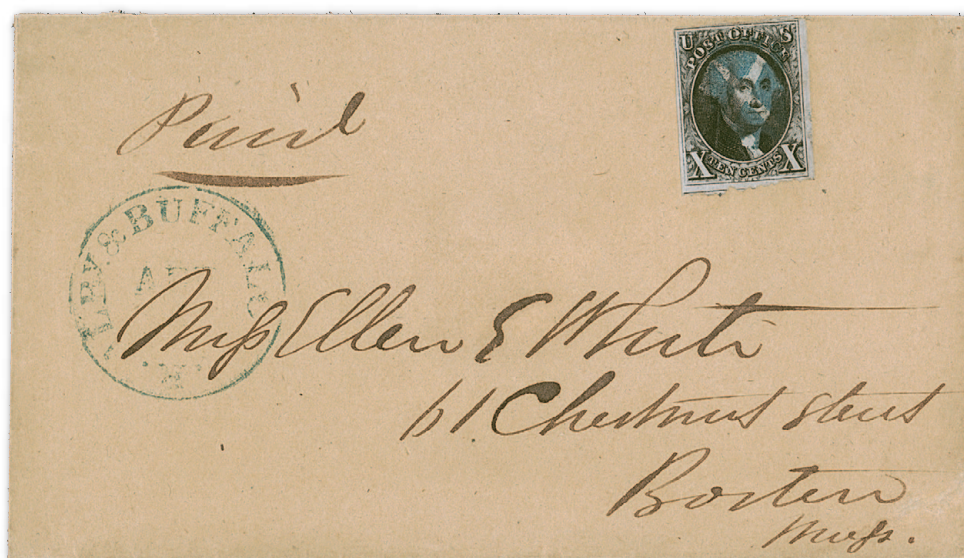 U S
POST OFFICE
X TEN CENTS X
Paid
& BUFFALO
Miss Ellen E White
61 Chestnut Street
Boston
Mass.